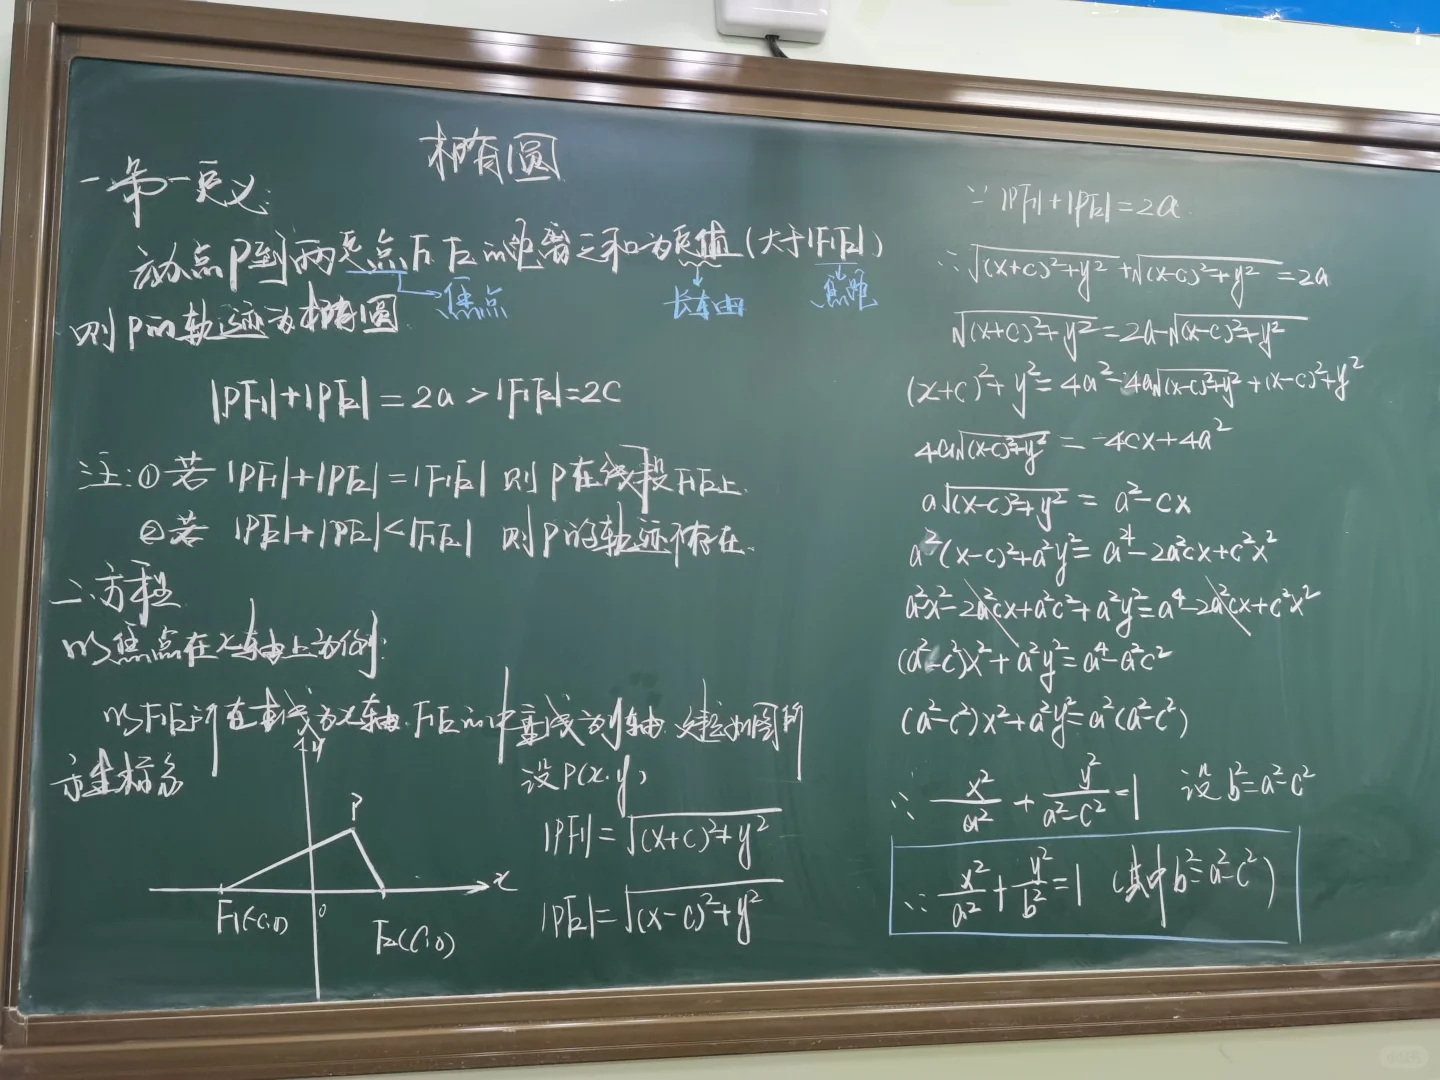 椭圆
一.第一定义:
动点P到两定点F1F2的距离之和为定值(大于|F1F2|)
焦点 长轴 焦距
则P的轨迹为椭圆
|PF1|+|PF2|=2a>|F1F2|=2c
注:①若|PF1|+|PF2|=|F1F2| 则P在线段F1F2上.
②若 |PF1|+|PF2|<|F1F2| 则P的轨迹不存在.
二.方程
以焦点在x轴上为例:
以F1F2所在直线为x轴.F1F2的中垂线为y轴.建立如图所
示坐标系
y
P
x
F1(-c,0)
0
F2(c,0)
设P(x.y)
|PF1|=√(x+c)²+y²
|PF2|=√(x-c)²+y²
∵|PF1|+|PF2|=2a
∴√(x+c)²+y²+√(x-c)²+y²=2a
√(x+c)²+y²=2a-√(x-c)²+y²
(x+c)²+y²=4a²-4a√(x-c)²+y²+(x-c)²+y²
4a√(x-c)²+y²=-4cx+4a²
a√(x-c)²+y²=a²-cx
a²(x-c)²+a²y²=a⁴-2a²cx+c²x²
a²x²-2a²cx+a²c²+a²y²=a⁴-2a²cx+c²x²
(a²-c²)x²+a²y²=a⁴-a²c²
(a²-c²)x²+a²y²=a²(a²-c²)
∴ x²/a²+y²/a²-c²=1 设b²=a²-c²
∴ x²/a²+y²/b²=1 (其中b²=a²-c²)